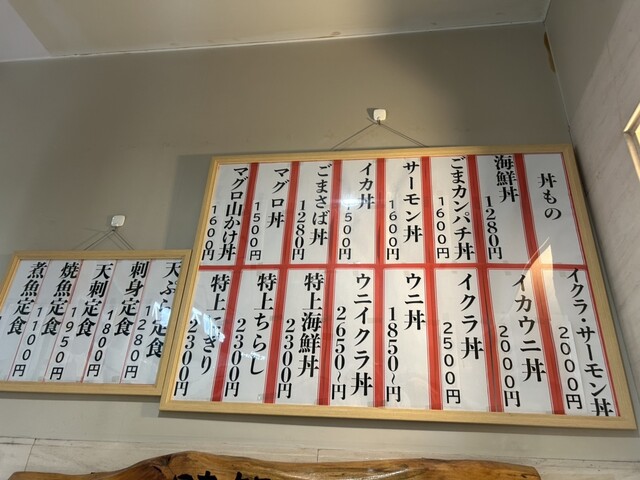 丼もの
海鮮丼 1280円
ごまカンパチ丼 1600円
サーモン丼 1600円
イカ丼 1500円
ごまさば丼 1280円
マグロ丼 1500円
マグロ山かけ丼 1600円
イクラ・サーモン丼 2000円
イカウニ丼 2000円
イクラ丼 2500円
ウニ丼 1850〜円
ウニイクラ丼 2650〜円
特上海鮮丼 2300円
特上ちらし 2300円
特上にぎり 2300円
天ぷら定食
刺身定食 1280円
天刺定食 1800円
焼魚定食 1950円
煮魚定食 1100円